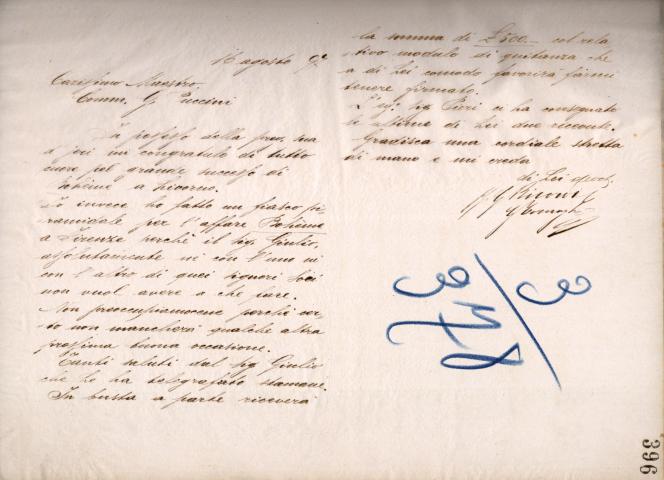 16 agosto 97
Carissimo Maestro,
Comm. G. Puccini
In risposta della pros. sua
d'jeri mi congratulo di tutto
cuore pel grande successo di
Bohème a Livorno.
Io invece ho fatto un fiasco pi-
ramidale per l'affare Bohème
a Firenze perchè il sig Giulio,
assolutamente nè con l'uno nè
con l'altro di quei signori
non vuol avere a che fare.
Non preoccupiamocene perchè cer-
to non mancherà qualche altra
prossima buona occasione.
Tanti saluti dal sig Giulio
che le ha telegrafato stamane.
In busta a parte riceverà
la somma di L 500.- col rela-
tivo modulo di quitanza che
a di Lei comodo favorirà farmi
tenere firmato.
sig. Pieri ci ha consegnato
di Lei due raccont.
Gradisca una cordiale stretta
di mano e mi creda
di Lei
p. G Ricordi
396